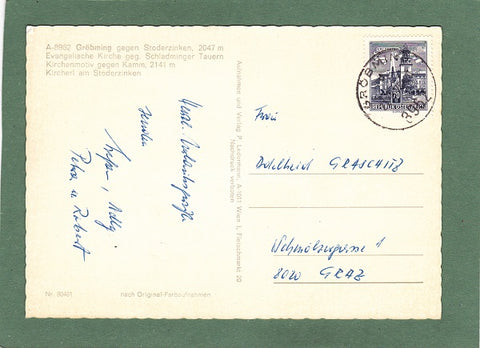 A-8962 Gröbming gegen Stoderzinken, 2047 m
Evangelische Kirche geg. Schladminger Tauern
Kirchenmotiv gegen Kamm, 2141 m
Kircherl am Stoderzinken
Herzl. Urlaubsgrüße
senden
Steffi, Adly,
Peter u Robert
Nr. 80421
nach Original-Farbaufnahmen
Aufnahmen und Verlag P. Ledermann, A-1011 Wien I., Fleischmarkt 20
Nachdruck verboten
GRÖBMING
8962
REPUBLIK ÖSTERREICH
Frau
Adelheid GRASCHITZ
8020 GRAZ